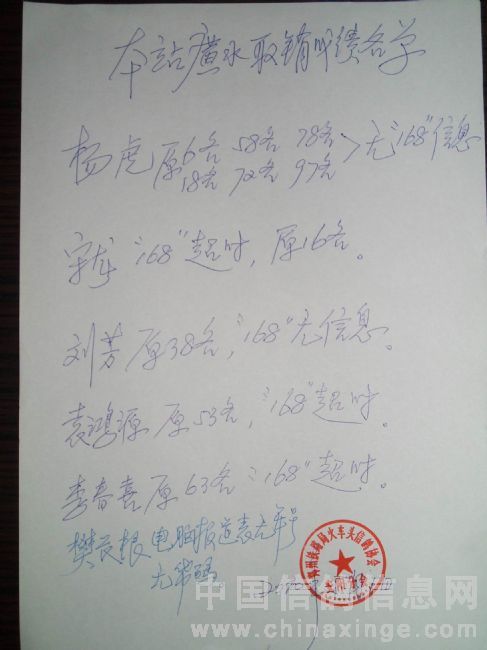 本站广水取销成绩名单
杨虎 原6名 58名 78名 >无"168"信息
18名 72名 97名
宋龙"168"超时,原16名。
刘芳原38名,"168"无信息。
袁鸿源 原53名,"168"超时。
李春喜原63名"168"超时。
樊长根 电脑报道表无单号
无华码
铁路局火车头信鸽协会
中国信鸽信息网
www.chinaxinge.com